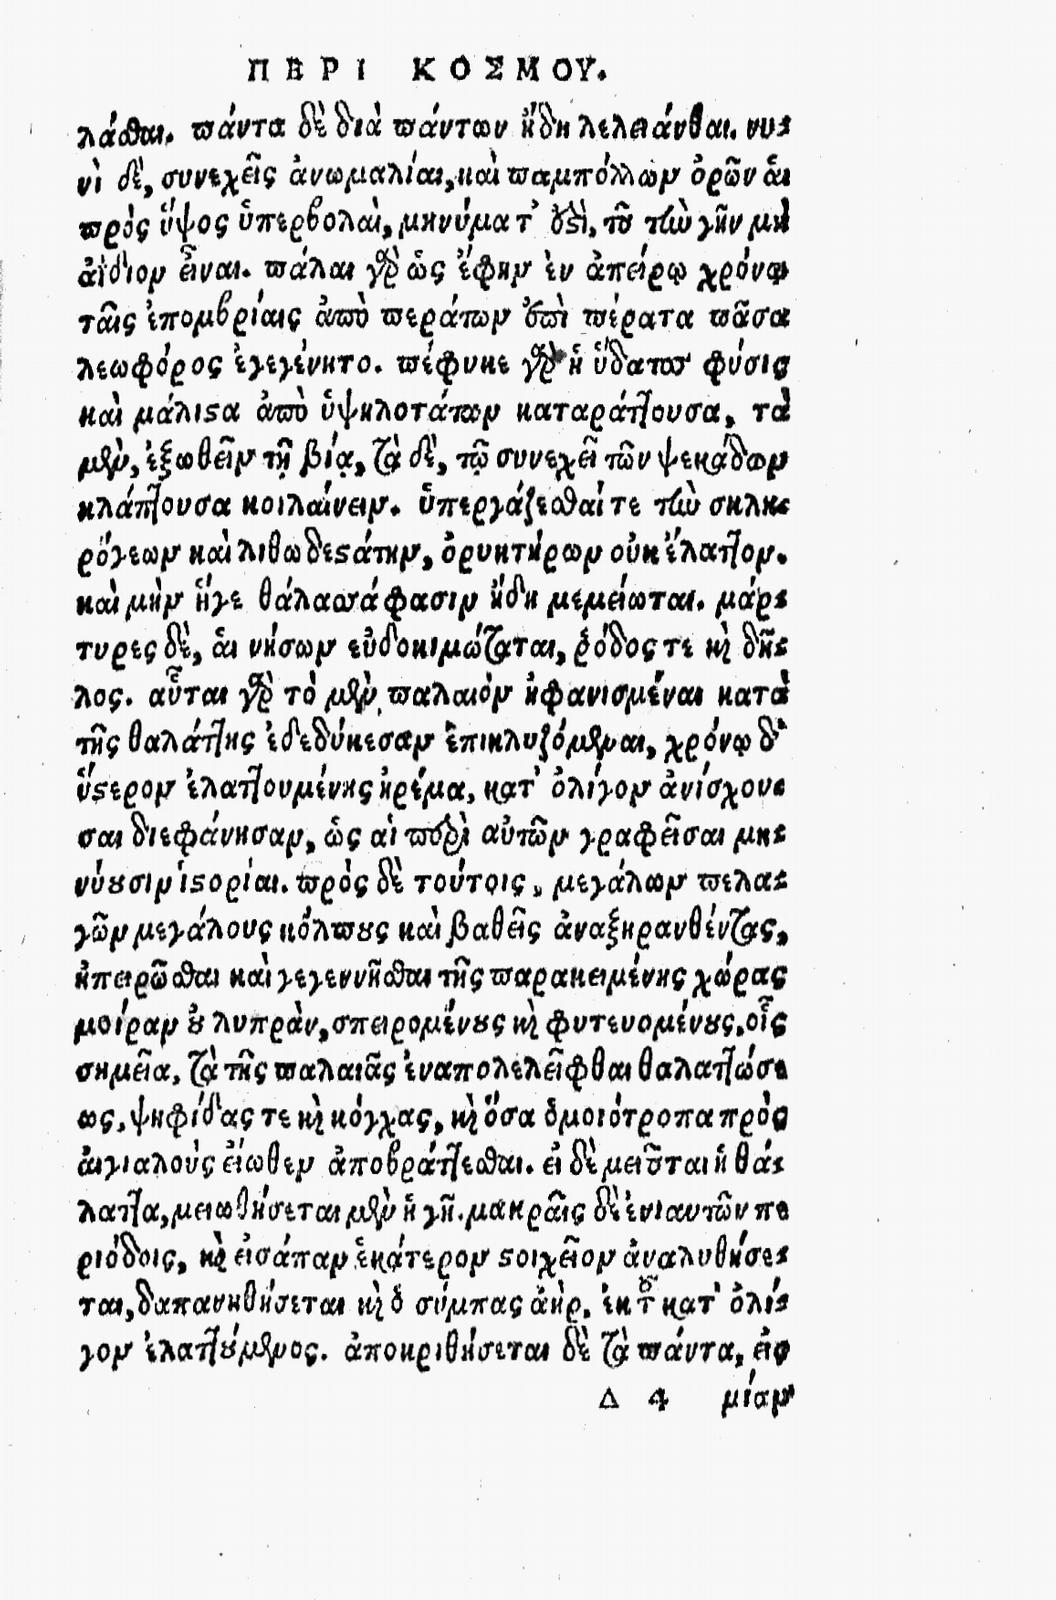 ΠΕΡΙ ΚΟΣΜΟΥ.
λάσθαι. πάντα δὲ διὰ πάντων ἤδη λελειάνθαι. νυ-
νὶ δὲ, συνεχεῖς ἀνωμαλίαι, καὶ παμπόλλων ὀρῶν ἁι
πρὸς ὕψος ὑπερβολαὶ, μηνύματ' ἐστὶ, τοῦ τὴν γῆν μὴ
ἀΐδιον εἶναι. πάλαι γὰρ ὡς ἔφην ἐν ἀπείρῳ χρόνῳ
ταῖς ἐπομβρίαις ἀπὸ περάτων ἐπὶ πέρατα πᾶσα
λεωφόρος ἐγεγένητο. πέφυκε γὰρ ἡ ὕδατος φύσις
καὶ μάλιστα ἀπὸ ὑψηλοτάτων καταράττουσα, τὰ
μὲν, ἐξωθεῖν τῇ βίᾳ, τὰ δὲ, τῷ συνεχεῖ τῶν ψεκάδων
κλάπτουσα κοιλαίνειν. ὑπεργάζεσθαί τε τὴν σκλη-
ρόγεων καὶ λιθωδεστάτην, ὀρυκτήρων οὐκ ἔλαττον.
καὶ μὴν ἥγε θάλασσά φασιν ἤδη μεμείωται. μάρ-
τυρες δὲ, ἁι νήσων εὐδοκιμώταται, ῥόδος τε καὶ δῆ-
λος. αὗται γὰρ τὸ μὲν παλαιὸν ἠφανισμέναι κατὰ
τῆς θαλάττης ἐδεδύκεσαν ἐπικλυζόμεναι, χρόνῳ δ'
ὕστερον ἐλαττουμένης ἠρέμα, κατ' ὀλίγον ἀνίσχου-
σαι διεφάνησαν, ὡς αἱ περὶ αὐτῶν γραφεῖσαι μη-
νύουσιν ἱστορίαι. πρὸς δὲ τούτοις, μεγάλων πελα-
γῶν μεγάλους κόλπους καὶ βαθεῖς ἀναξηρανθέντας,
ἠπειρῶσθαι καὶ γεγεννῆσθαι τῆς παρακειμένης χώρας
μοίραν οὐ λυπρὰν, σπειρομένους καὶ φυτευομένους, οἷς
σημεῖα, τὰ τῆς παλαιᾶς ἐναπολελεῖφθαι θαλαττώσε
ως, ψηφίδας τε καὶ κόγχας, καὶ ὅσα ὁμοιότροπα πρὸς
ἀιγιαλοὺς εἴωθεν ἀποβράττεσθαι. εἰ δὲ μειοῦται ἡ θά-
λαττα, μειωθήσεται μὲν ἡ γῆ. μακραῖς δὲ ἐνιαυτῶν πε
ριόδοις, καὶ εἰσάπαν ἑκάτερον στοιχεῖον ἀναλυθήσε-
ται, δαπανηθήσεται καὶ ὁ σύμπας ἀὴρ, ἐκ τοῦ κατ' ὀλί-
γον ἐλαττούμενος. ἀποκριθήσεται δὲ τὰ πάντα, εἰς
Δ 4 μίαν